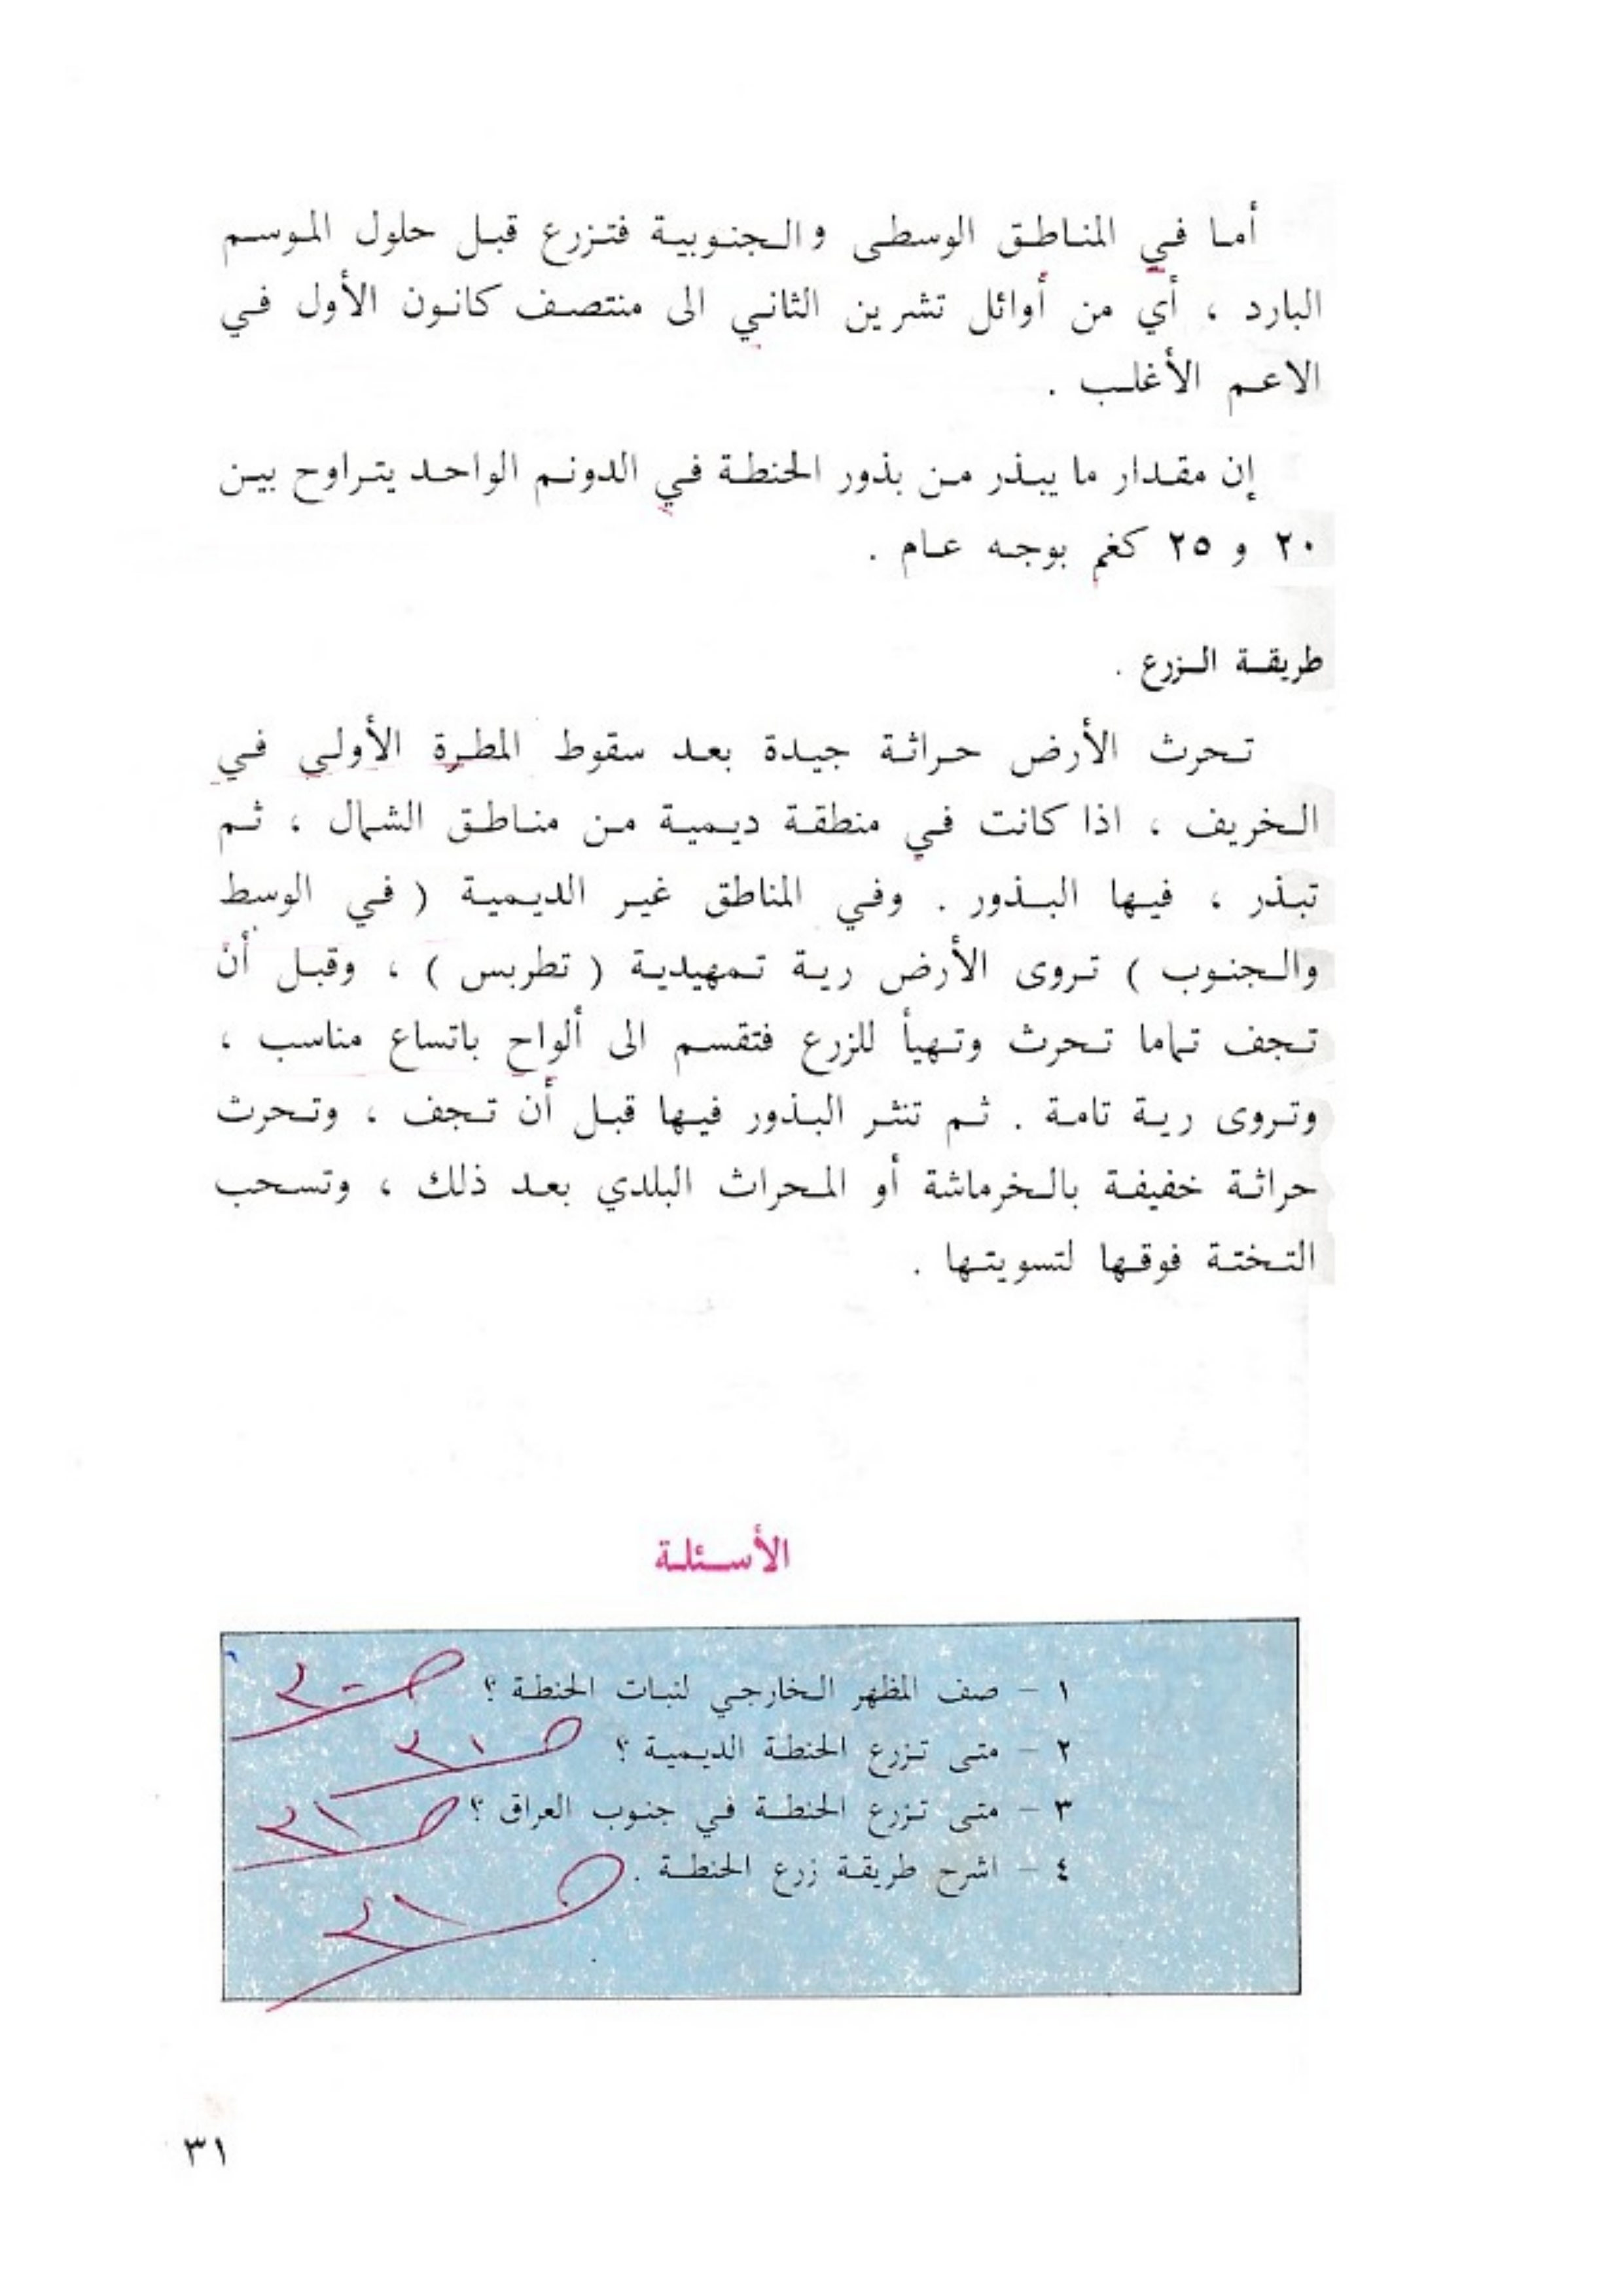 أما في المناطق الوسطى والجنوبية فتزرع قبل حلول الموسم
البارد ، أي من أوائل تشرين الثاني الى منتصف كانون الأول في
الاعم الأغلب .
إن مقدار ما يبذر من بذور الحنطة في الدونم الواحد يتراوح بين
٢٠ و ٢٥ كغم بوجه عام .
طريقة الزرع .
تحرث الأرض حراثة جيدة بعد سقوط المطرة الأولي في
الخريف ، اذا كانت في منطقة ديمية من مناطق الشمال ، ثم
تبذر ، فيها البذور . وفي المناطق غير الديمية ( في الوسط
والجنوب ) تروى الأرض رية تمهيدية ( تطربس ) ، وقبل أن
تجف تماما تحرث وتهيأ للزرع فتقسم الى ألواح باتساع مناسب ،
وتروى رية تامة . ثم تنثر البذور فيها قبل أن تجف ، وتحرث
حراثة خفيفة بالخرماشة أو المحراث البلدي بعد ذلك ، وتسحب
التختة فوقها لتسويتها .
الأسئلة
١ - صف المظهر الخارجي لنبات الحنطة ؟ ص ٣٠
٢ - متى تزرع الحنطة الديمية ؟ ص ٣١
٣ - متى تزرع الحنطة في جنوب العراق ؟ ص ٣١
٤ - اشرح طريقة زرع الحنطة . ص ٣١
٣١